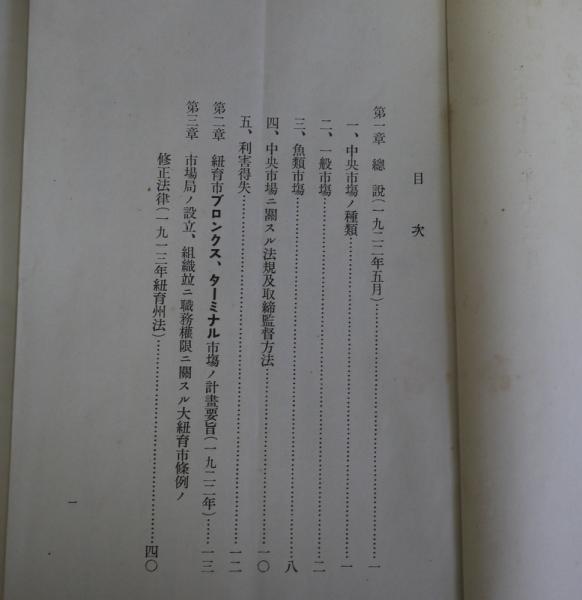 目次
第一章 總說(一九二二年五月)……一
一、中央市塲ノ種類……一
二、一般市塲……二
三、魚類市塲……八
四、中央市場ニ關スル法規及取締監督方法……一〇
五、利害得失……一二
第二章 紐育市ブロンクス、ターミナル市塲ノ計畫要旨(一九二二年)……一三
第三章 市場局ノ設立、組織竝ニ職務權限ニ關スル大紐育市條例ノ
修正法律(一九一三年紐育州法)……四〇
一